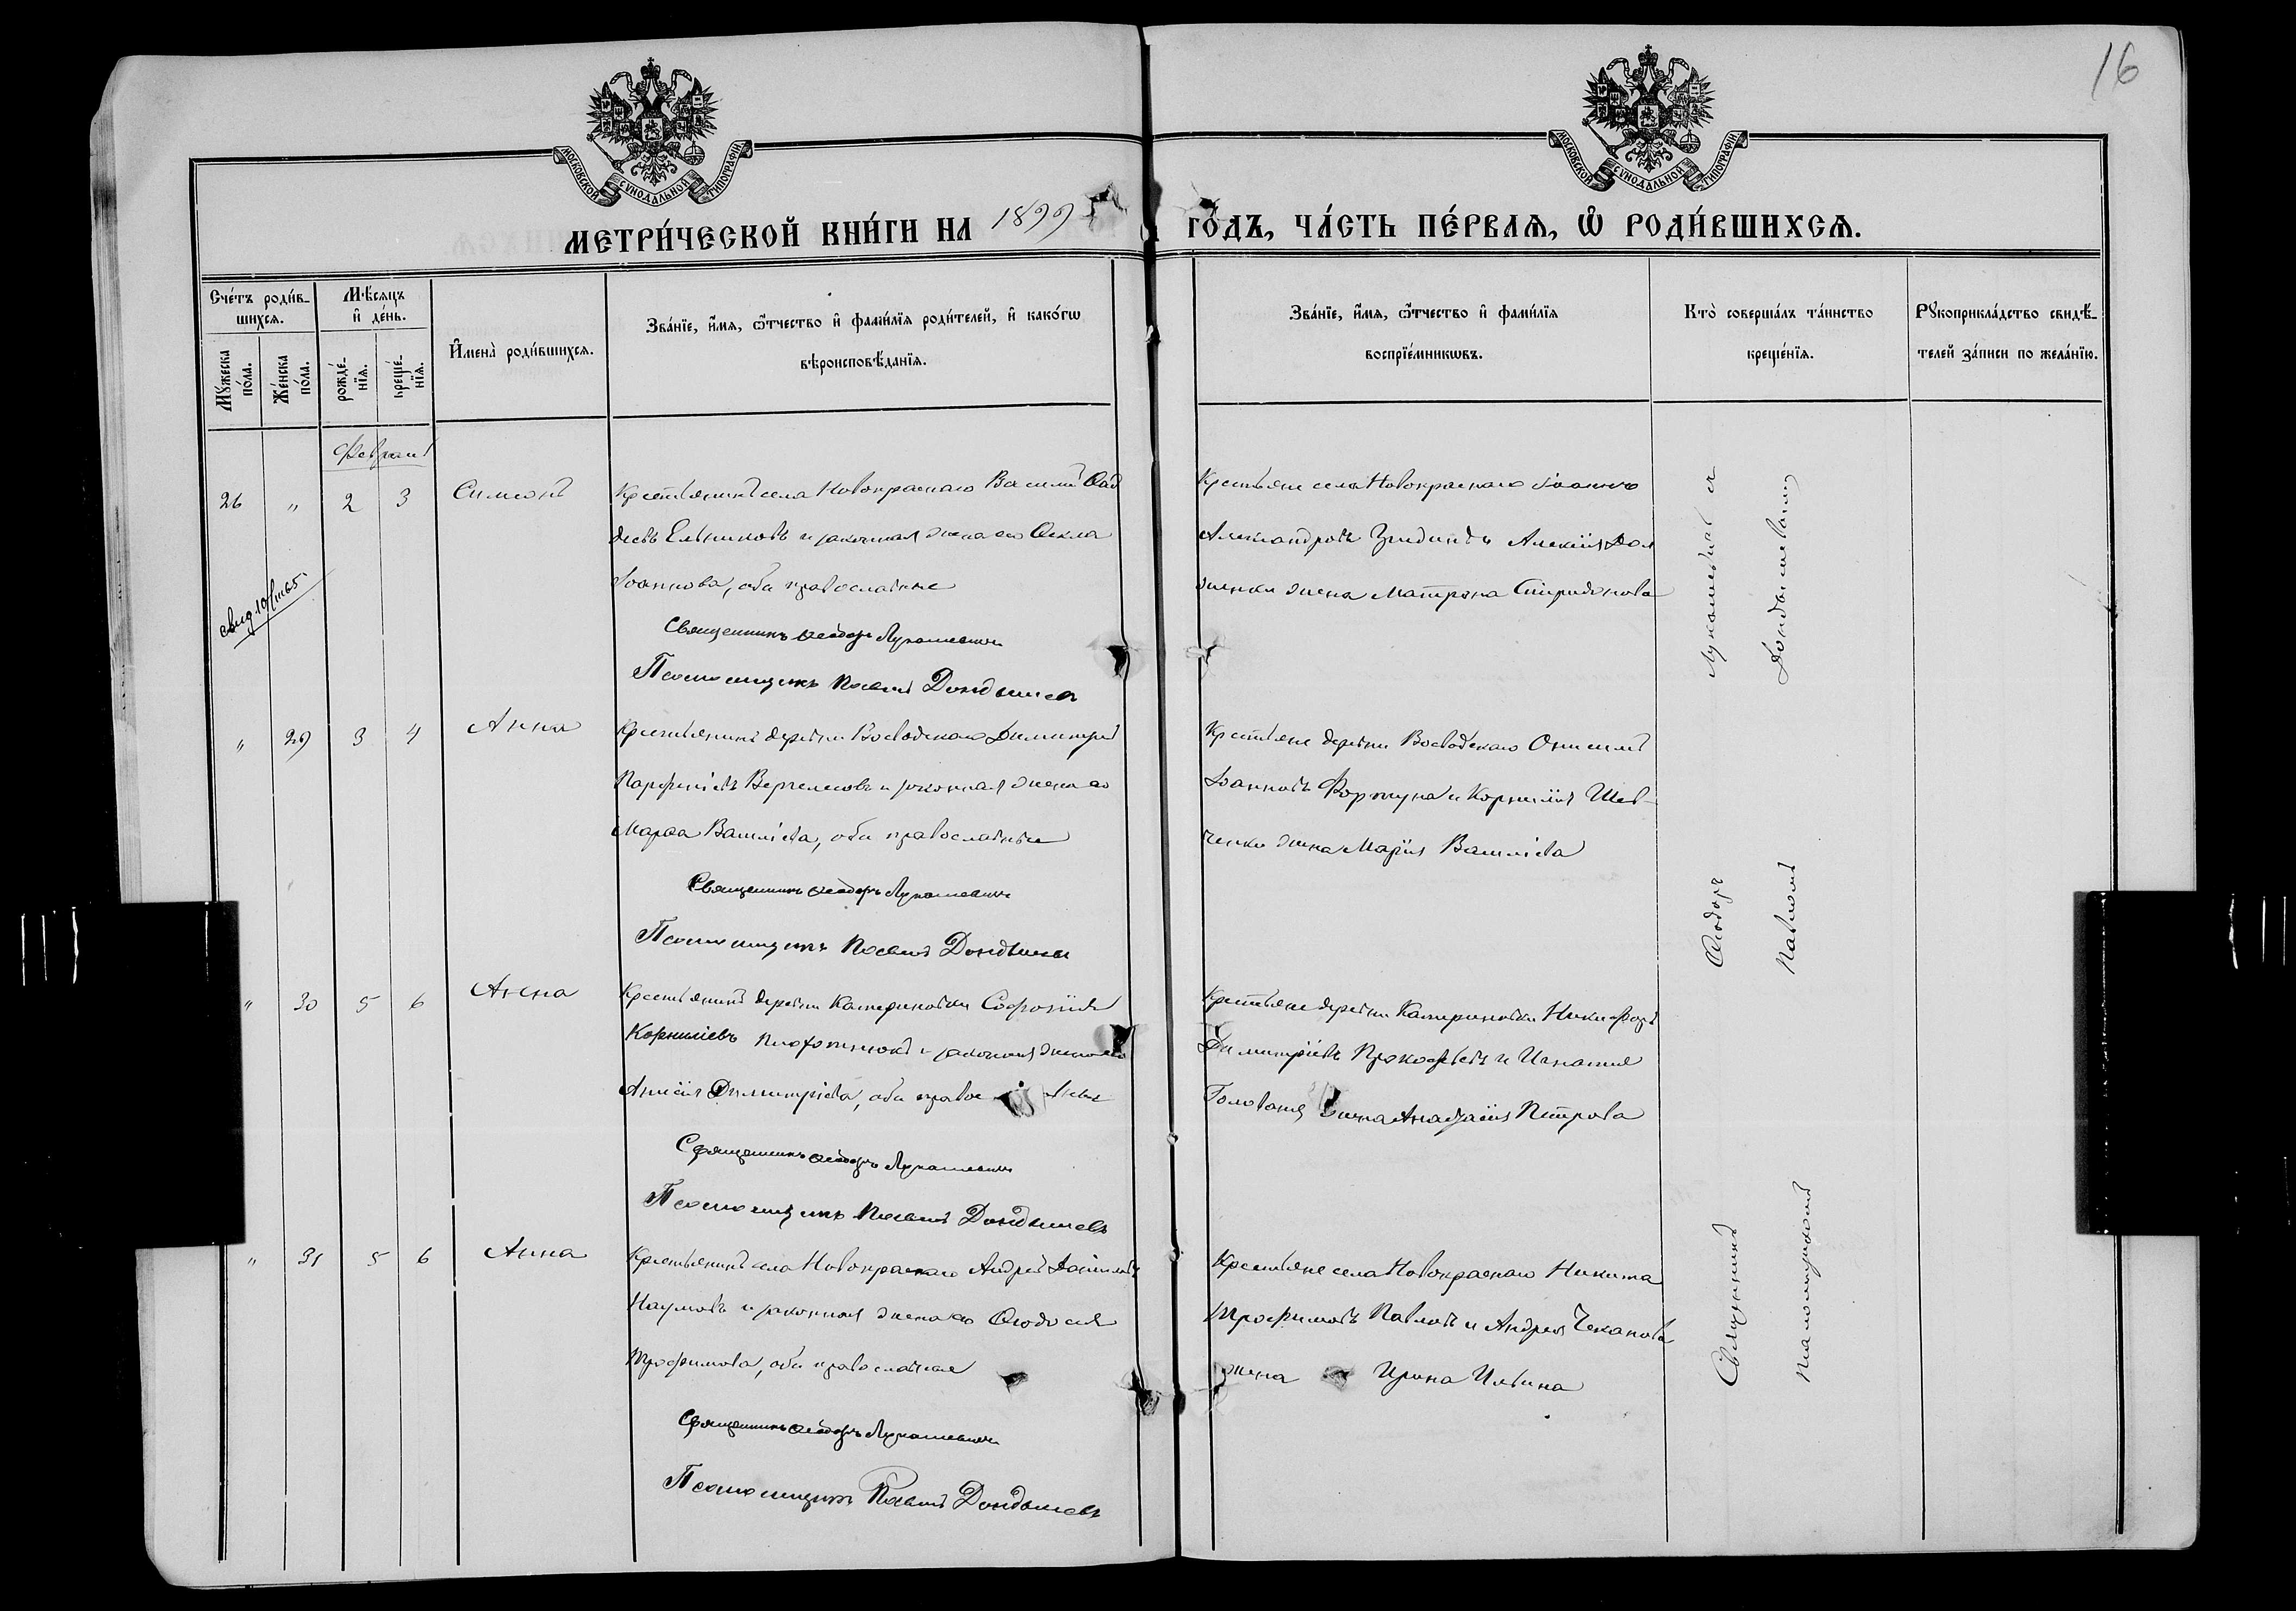 16
МОСКОВСКОЙ СѴНОДАЛЬНОЙ ТИПОГРАФІИ
МОСКОВСКОЙ СѴНОДАЛЬНОЙ ТИПОГРАФІИ
МЕТРИ́ЧЕСКОЙ КНИ́ГИ НА 1899 ГО́ДЪ, ЧА́СТЬ ПЕ́РВАЯ, Ѡ҆ РОДИ́ВШИХСЯ.
Сче́тъ роди́в-
шихся.
Мѣ́сяцъ
и҆ де́нь.
Мꙋ́жеска
по́ла.
Же́нска
по́ла.
рожде́-
нїя.
креще́-
нїя.
И҆мена̀ роди́вшихся.
Зва́нїе, и҆́мя, ѻ҆́тчество и҆ фами́лїя роди́телей, и҆ како́гѡ
вѣроисповѣ́данїя.
Зва́нїе, и҆́мя, ѻ҆́тчество и҆ фами́лїя
воспрїе́мникѡвъ.
Кто̀ соверша́лъ та́инство
креще́нїя.
Рꙋкоприкла́дство свидѣ́-
телей за́писи по жела́нїю.
Февраль
26 " 2 3 Симеонъ
Крестьянинъ села Новокраснаго Василій Ѳад
деевъ Ельниковъ и законная жена его Ѳекла
Іоаннова, оба православные
Священникъ Ѳеодоръ Лукашевичъ
Псаломщикъ Павелъ Дондышевъ
Крестьяне села Новокраснаго Іоаннъ
Александровъ и Алексія Дол
женки жена Матрона Спиридонова
" 29 3 4 Анна
Крестьянинъ деревни Воеводскаго Димитрій
Парфеніевъ и законная жена его
Марѳа Василіева, оба православные
Священникъ Ѳеодоръ Лукашевичъ
Псаломщикъ Павелъ Дондышевъ
Крестьяне деревни Воеводскаго Онисимъ
Іоанновъ Фортуна и Корнилія Шев-
ченки жена Марія Василіева
" 30 5 6 Анна
Крестьянинъ деревни Катериновки Софронія
Корниліевъ и законная жена его
Димитріева, оба православные
Священникъ Ѳеодоръ Лукашевичъ
Псаломщикъ Павелъ Дондышевъ
Крестьяне деревни Катериновки Никифоръ
Димитріевъ Прокофьевъ и Игнатія
Голована жена Анастасія Петрова
" 31 5 6 Анна
Крестьянинъ села Новокраснаго Андрей Даніиловъ
Наумовъ и законная жена его Ѳеодосія
Трофимова, оба православные
Священникъ Ѳеодоръ Лукашевичъ
Псаломщикъ Павелъ Дондышевъ
Крестьяне села Новокраснаго Никита
Трофимовъ Павловъ и Андрея Чеканова
жена Ирина Ильина
Священникъ Ѳеодоръ Лукашевичъ съ
псаломщикомъ Павломъ Дондышевымъ